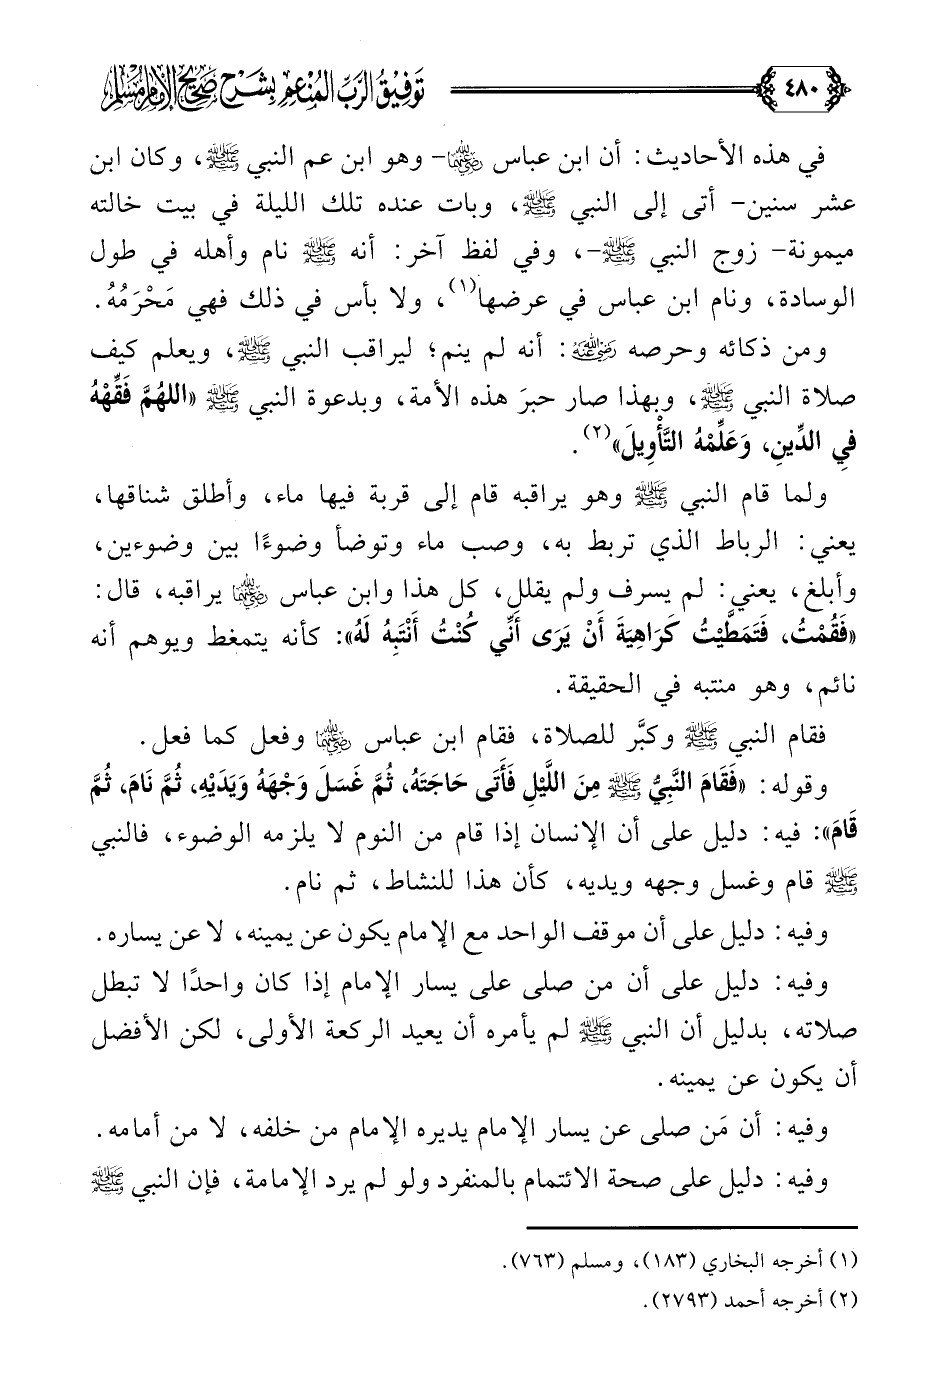 ٤٨٠ توفيق الرب المنعم بشرح صحيح الإمام مسلم
في هذه الأحاديث: أن ابن عباس رضي الله عنهما- وهو ابن عم النبي ﷺ، وكان ابن
عشر سنين- أتى إلى النبي ﷺ، وبات عنده تلك الليلة في بيت خالته
ميمونة- زوج النبي ﷺ-، وفي لفظ آخر: أنه ﷺ نام وأهله في طول
الوسادة، ونام ابن عباس في عرضها(١)، ولا بأس في ذلك فهي مَحْرَمُهُ.
ومن ذكائه وحرصه رضي الله عنه: أنه لم ينم؛ ليراقب النبي ﷺ، ويعلم كيف
صلاة النبي ﷺ، وبهذا صار حبرَ هذه الأمة، وبدعوة النبي ﷺ «اللهُمَّ فَقِّهْهُ
فِي الدِّينِ، وَعَلِّمْهُ التَّأْوِيلَ»(٢).
ولما قام النبي ﷺ وهو يراقبه قام إلى قربة فيها ماء، وأطلق شناقها،
يعني: الرباط الذي تربط به، وصب ماء وتوضأ وضوءًا بين وضوءين،
وأبلغ، يعني: لم يسرف ولم يقلل، كل هذا وابن عباس رضي الله عنهما يراقبه، قال:
«فَقُمْتُ، فَتَمَطَّيْتُ كَرَاهِيَةَ أَنْ يَرَى أَنِّي كُنْتُ أَنْتَبِهُ لَهُ»: كأنه يتمغط ويوهم أنه
نائم، وهو منتبه في الحقيقة.
فقام النبي ﷺ وكبَّر للصلاة، فقام ابن عباس رضي الله عنهما وفعل كما فعل.
وقوله: «فَقَامَ النَّبِيُّ ﷺ مِنَ اللَّيْلِ فَأَتَى حَاجَتَهُ، ثُمَّ غَسَلَ وَجْهَهُ وَيَدَيْهِ، ثُمَّ نَامَ، ثُمَّ
قَامَ»: فيه: دليل على أن الإنسان إذا قام من النوم لا يلزمه الوضوء، فالنبي
ﷺ قام وغسل وجهه ويديه، كأن هذا للنشاط، ثم نام.
وفيه: دليل على أن موقف الواحد مع الإمام يكون عن يمينه، لا عن يساره.
وفيه: دليل على أن من صلى على يسار الإمام إذا كان واحدًا لا تبطل
صلاته، بدليل أن النبي ﷺ لم يأمره أن يعيد الركعة الأولى، لكن الأفضل
أن يكون عن يمينه.
وفيه: أن مَن صلى عن يسار الإمام يديره الإمام من خلفه، لا من أمامه.
وفيه: دليل على صحة الائتمام بالمنفرد ولو لم يرد الإمامة، فإن النبي ﷺ
(١) أخرجه البخاري (١٨٣)، ومسلم (٧٦٣).
(٢) أخرجه أحمد (٢٧٩٣).